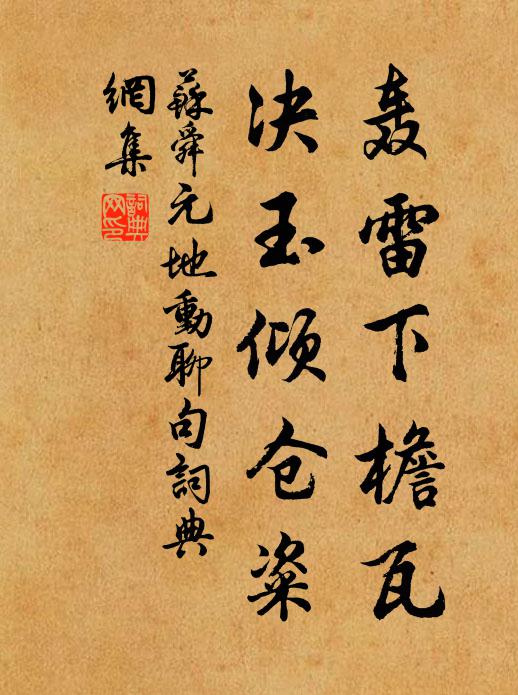 轰雷下檐瓦
决玉倾仓粢
蘇舜元地動聊句詞典
網集
詞典
网印